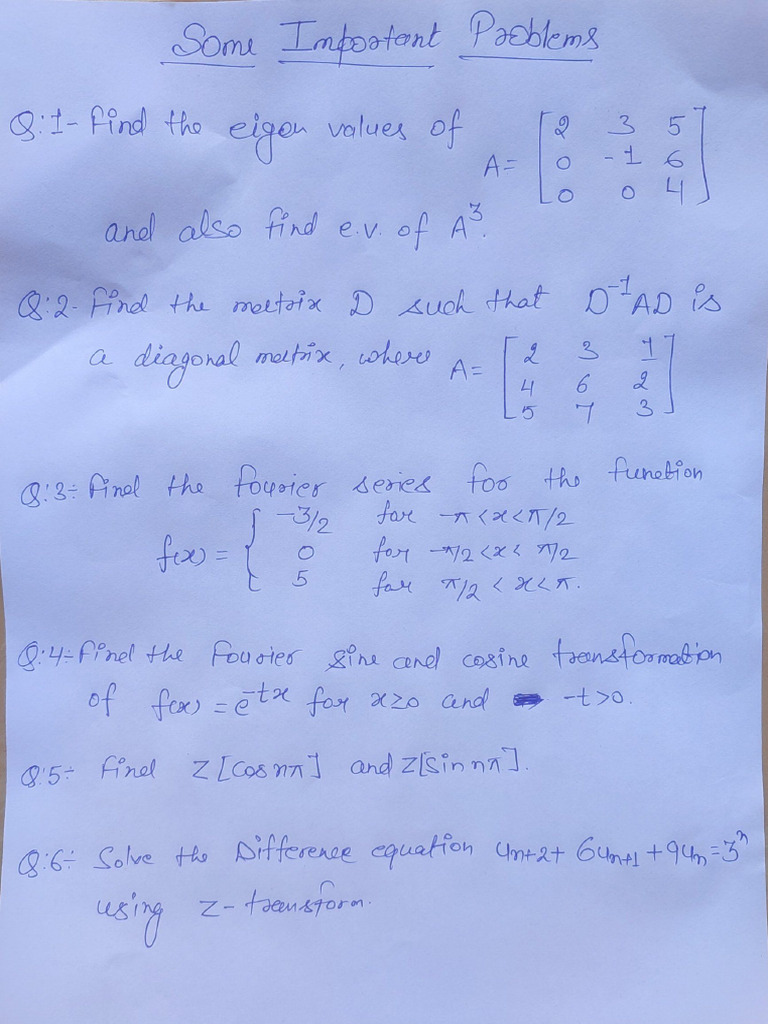 Some Important Problems
Q:1- Find the eigen values of A= [2 3 5
0 -1 6
0 0 4]
and also find e.v. of A³.
Q:2- Find the matrix D such that D⁻¹AD is
a diagonal matrix, where A= [2 3 1
4 6 2
5 7 3]
Q:3÷ Find the fourier series for the function
f(x) = { -3/2 for -π<x<π/2
0 for -π/2<x<π/2
5 for π/2<x<π.
Q:4÷ Find the Fourier sine and cosine transformation
of f(x) = e^-tx for x≥0 and -t>0.
Q:5÷ Find Z[cos nπ] and Z[sin nπ].
Q:6÷ Solve the Difference equation un+2+ 6un+1 +9un=3ⁿ
using z-transform.